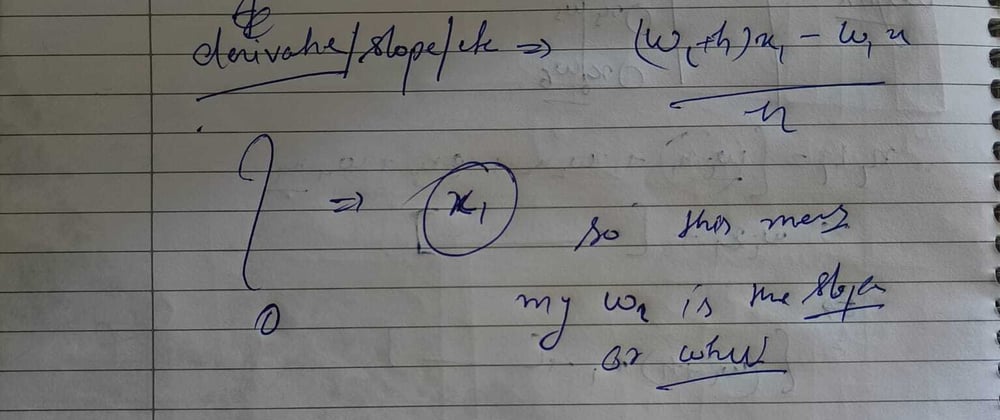 derivative/slope/etc ⇒ (w₁+h)x₁ − w₁x
h
⇒ x₁
so this means
my w₂ is the slope
or what
0